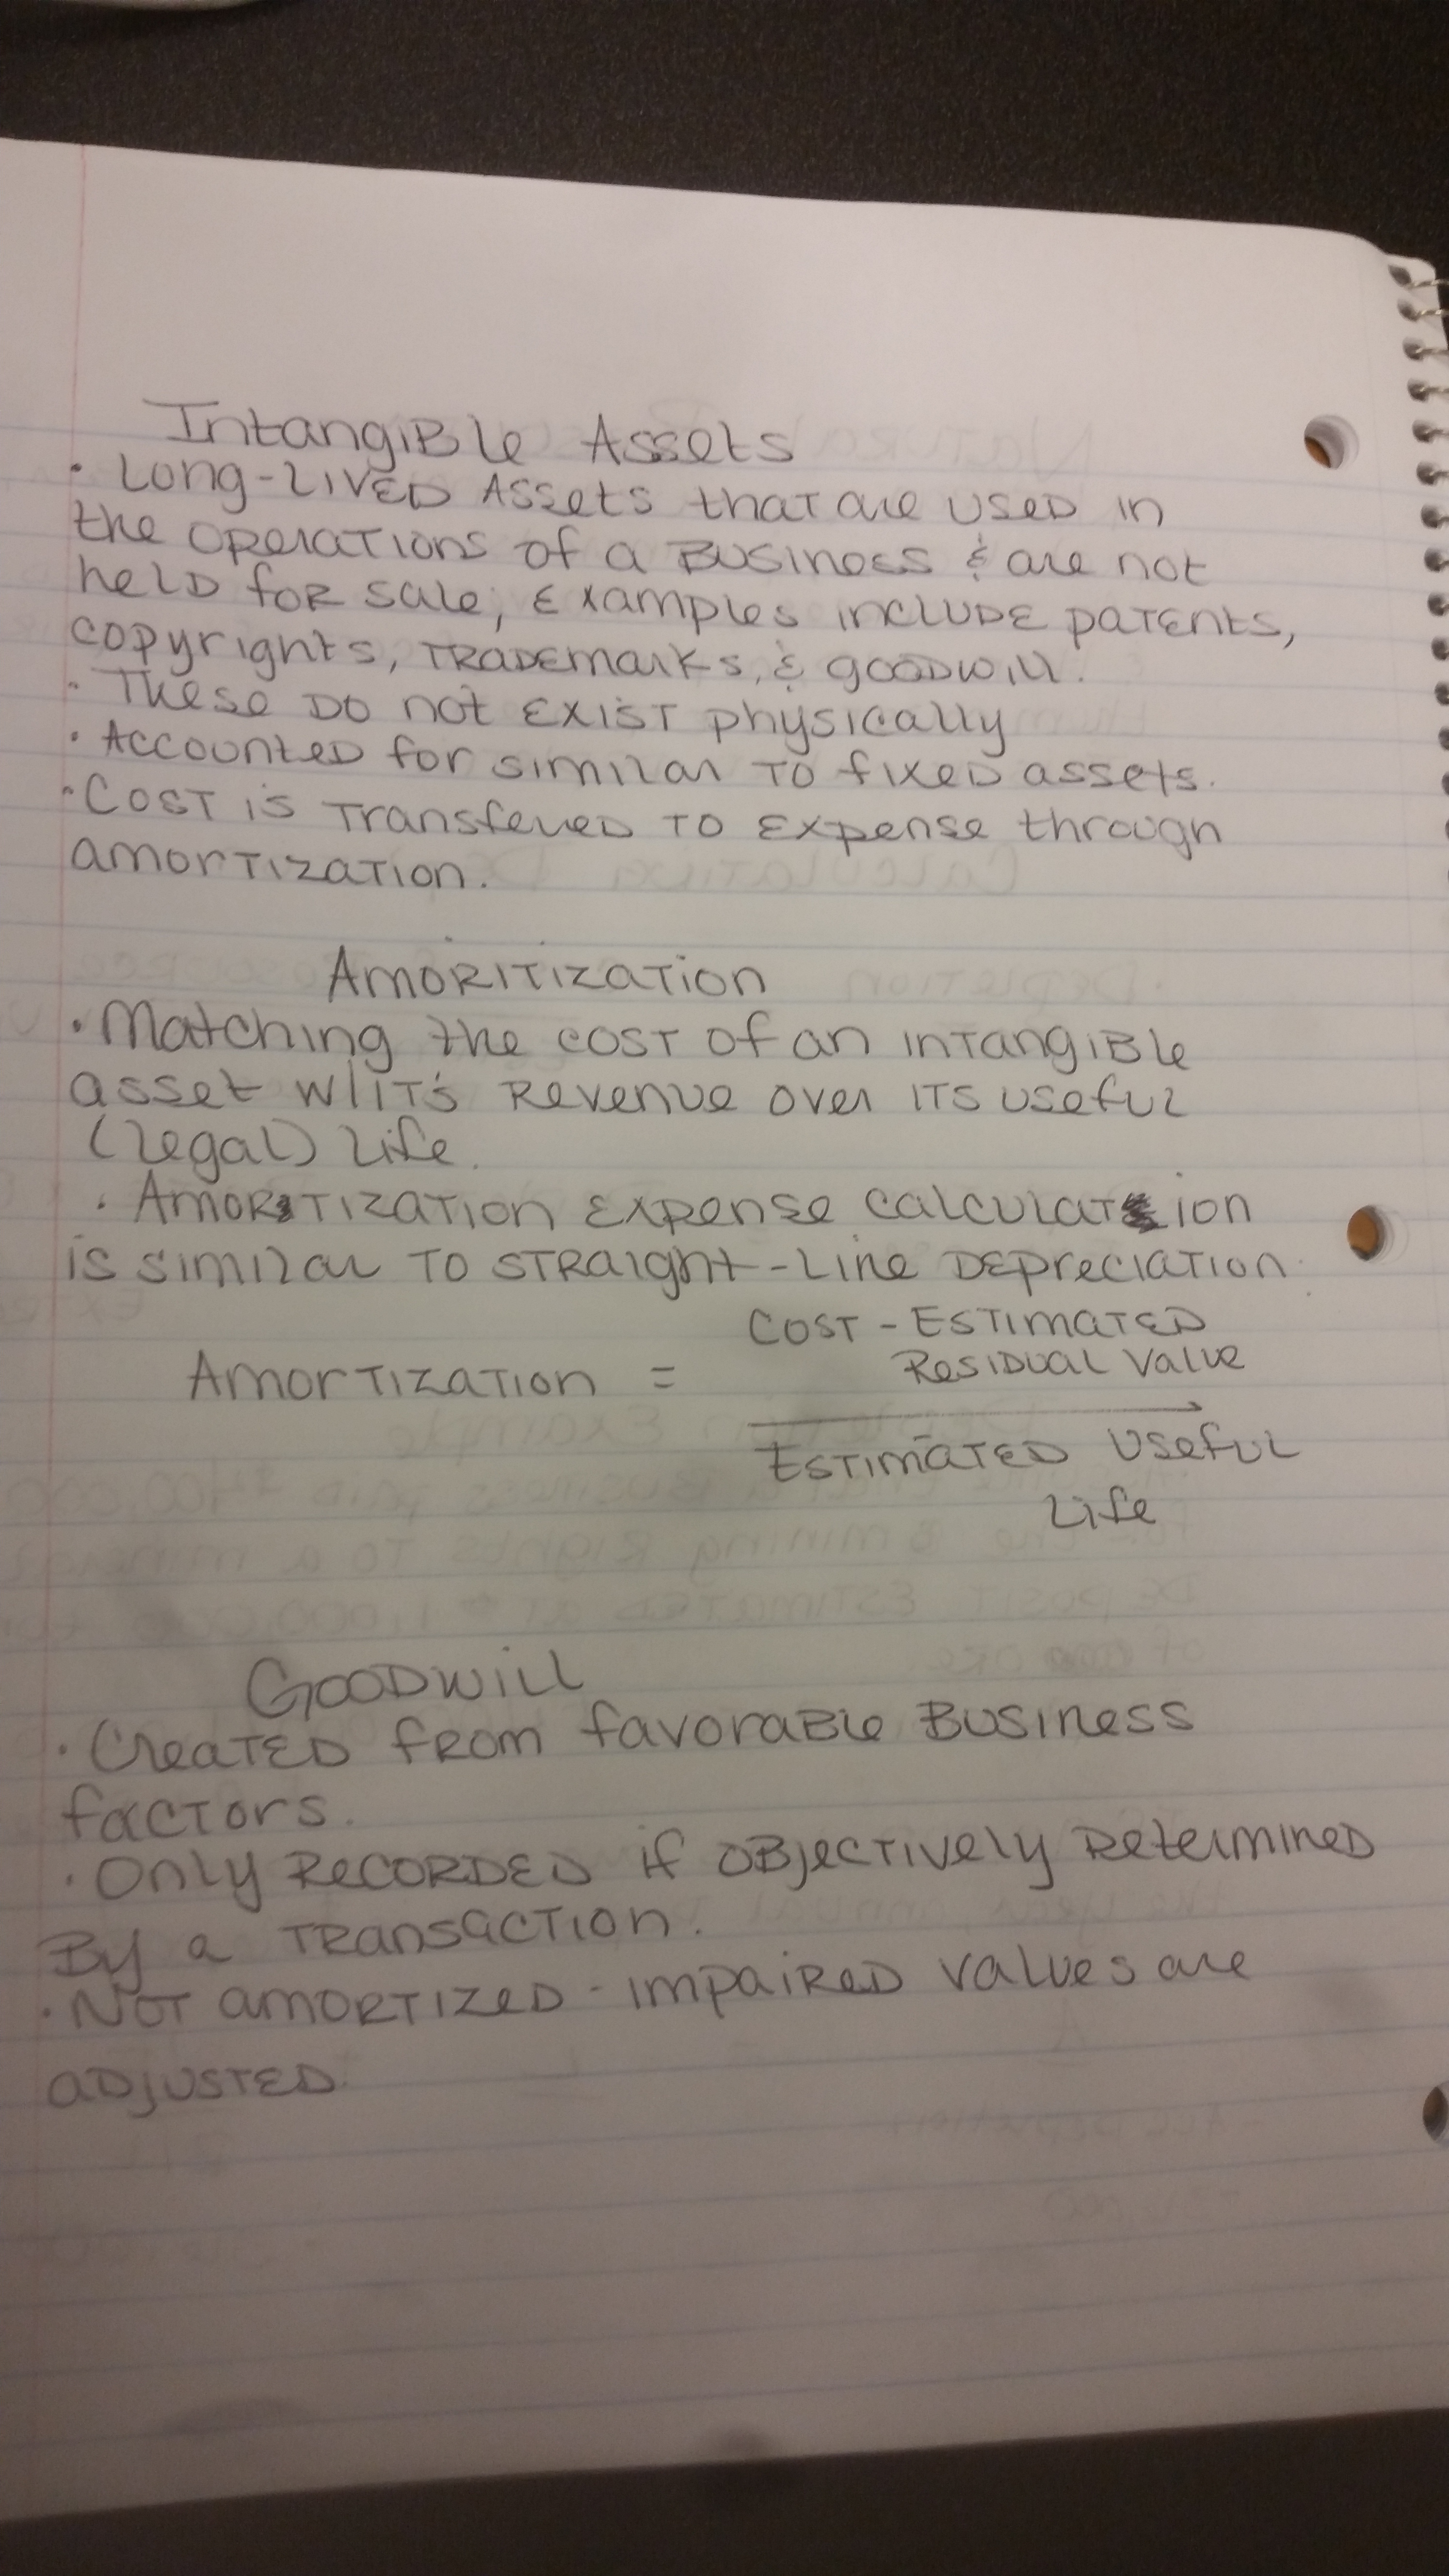 Intangible Assets
• Long-Lived Assets that are used in
the operations of a Business & are not
held for sale; Examples include patents,
copyrights, Trademarks, & goodwill.
• These Do not Exist physically
• Accounted for similar To fixed assets.
• Cost is Transfered To Expense through
amortization.
Amoritization
• Matching the cost of an intangible
asset w/it's Revenue over its useful
(legal) life.
• Amortization Expense calculation
is similar To straight-line Depreciation
Cost - Estimated
Residual Value
Amortization =
Estimated Useful
Life
Goodwill
• Created from favorable Business
factors.
• Only Recorded if objectively Determined
By a Transaction.
• Not amortized - impaired values are
adjusted.